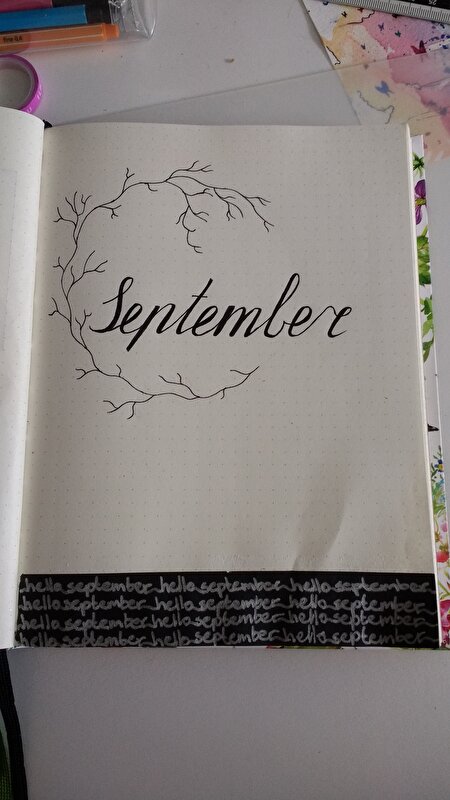 fine 0,4
September
hello september hello september hello september
hello september hello september hello september
hello september hello september hello september
hello september hello september hello september